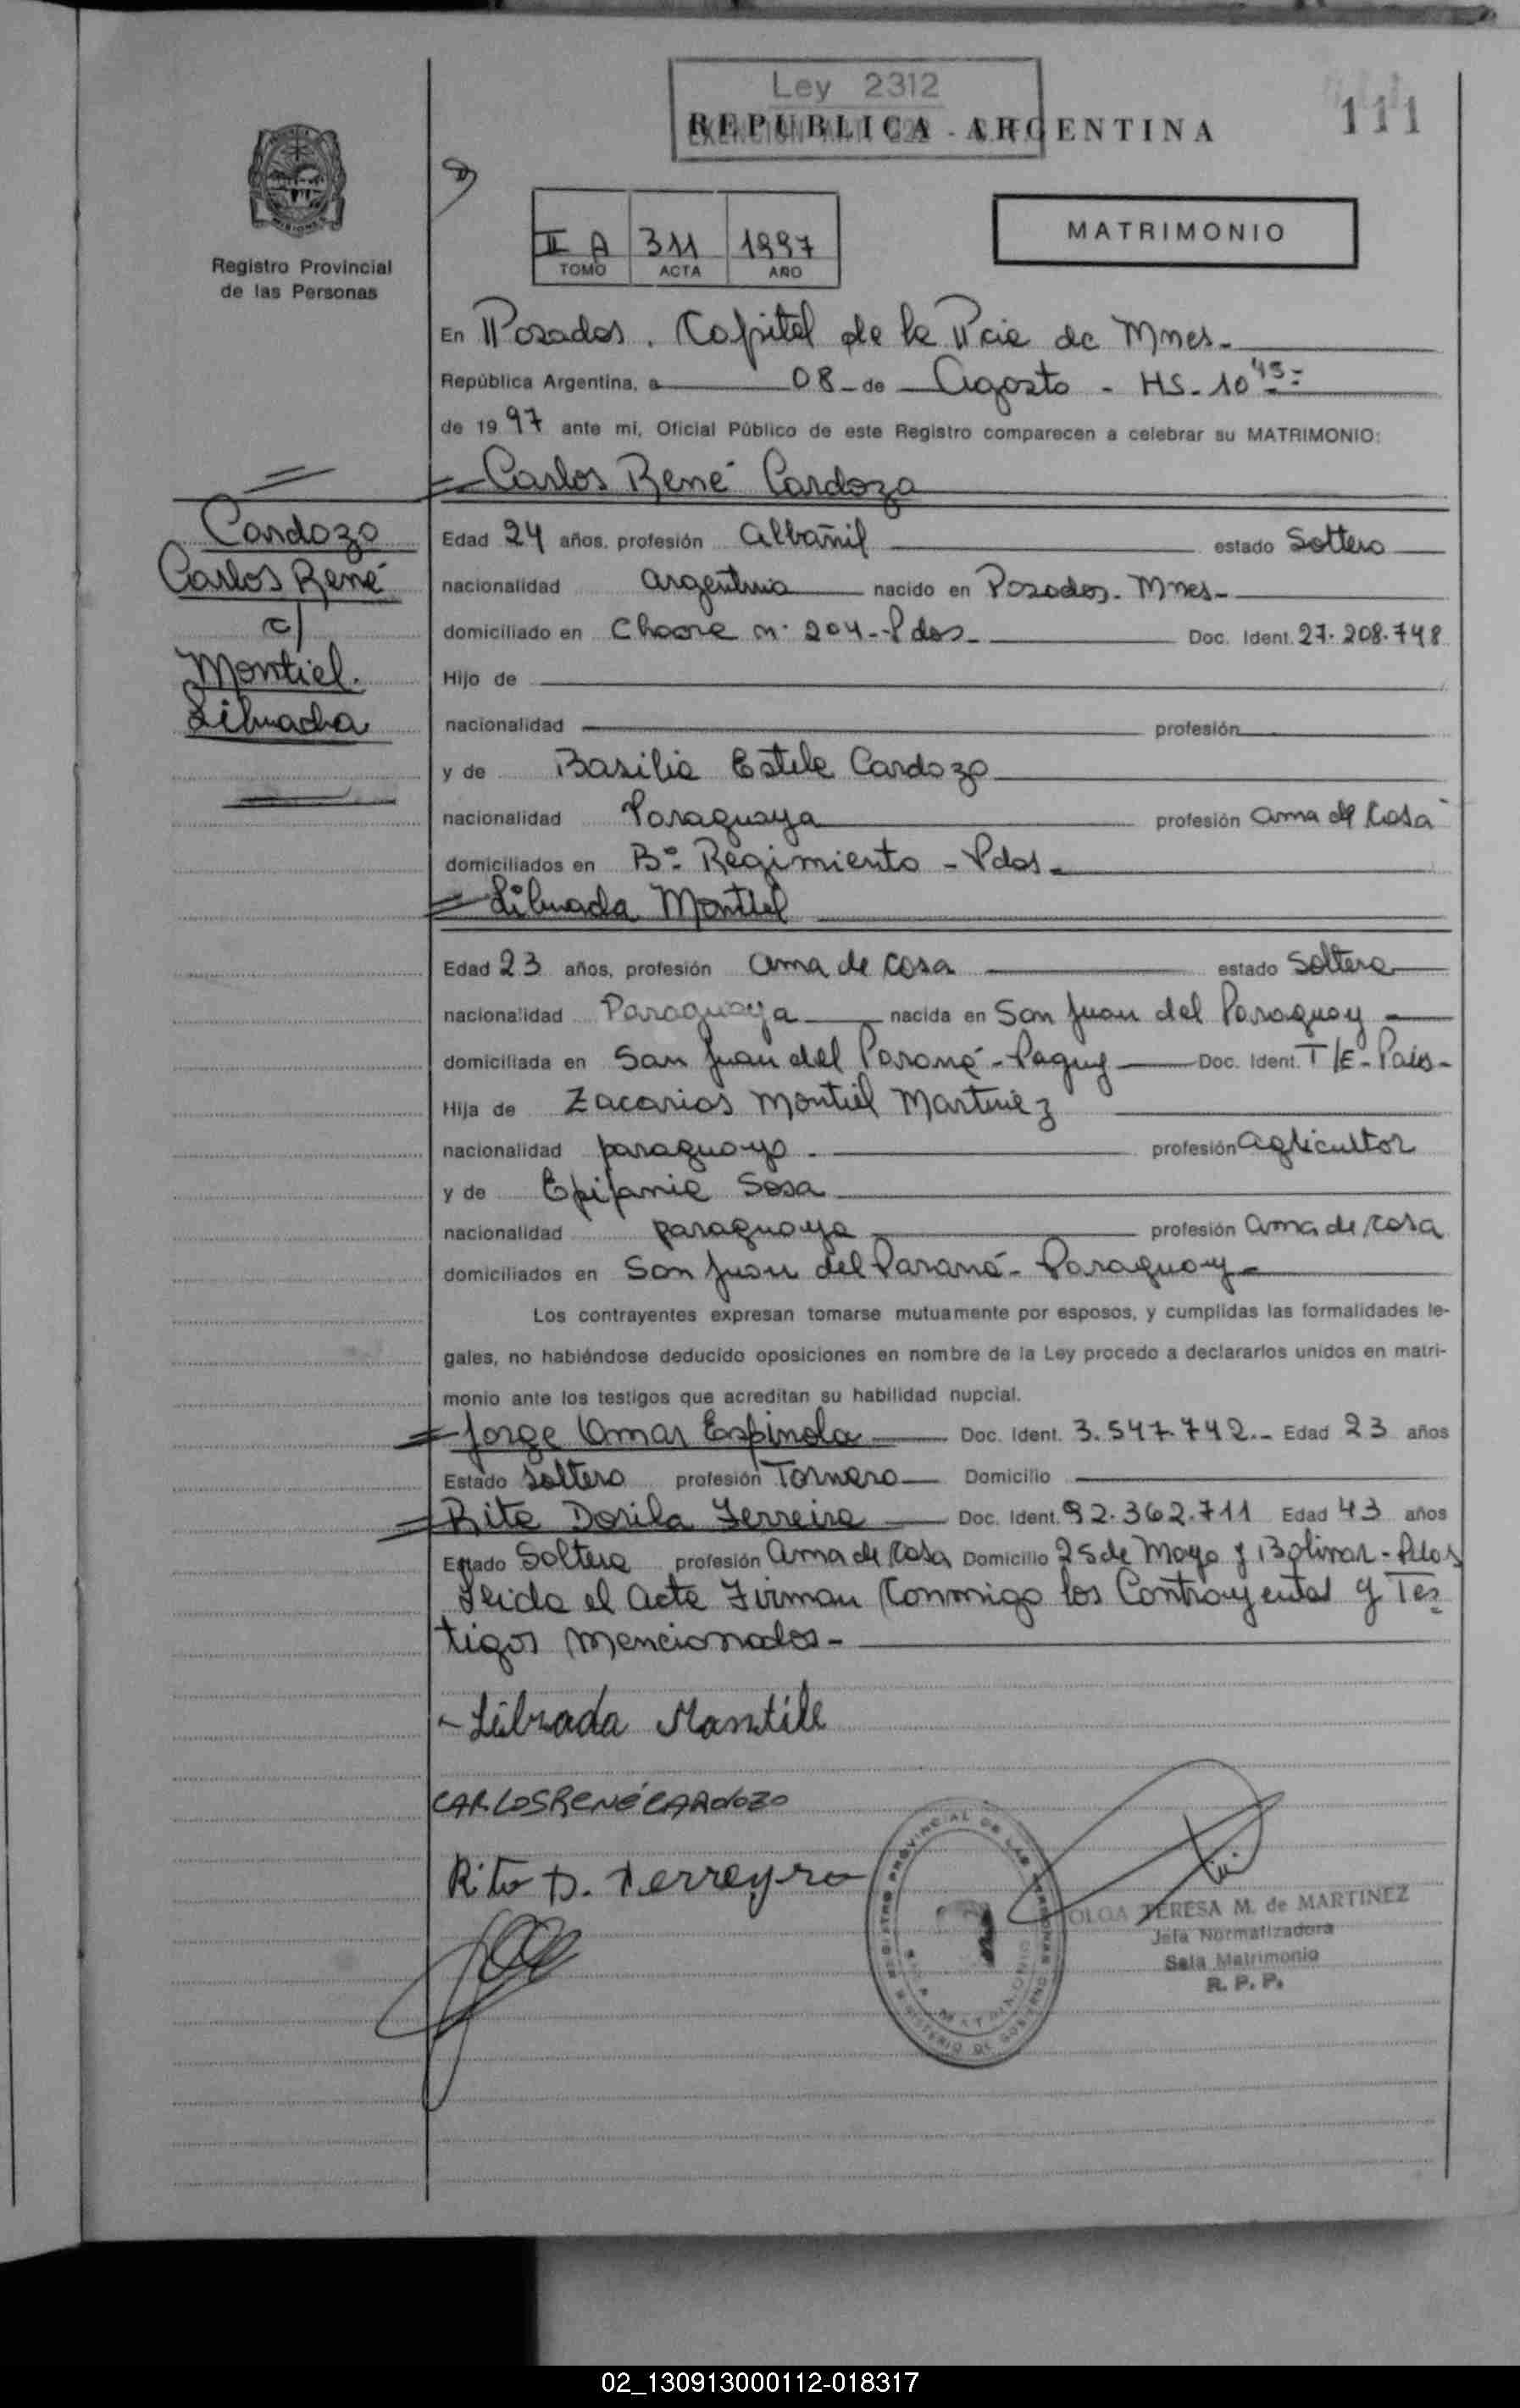 Ley 2312
REPUBLICA ARGENTINA
111
II A 311 1997
TOMO ACTA AÑO
MATRIMONIO
Registro Provincial
de las Personas
En Posadas. Capital de la Pcia de Mnes-
República Argentina, a 08 de Agosto - HS- 10 45=
de 1997 ante mí, Oficial Público de este Registro comparecen a celebrar su MATRIMONIO:
= Carlos René Cardozo
Cardozo
Carlos René
c/
Montiel.
Librada
Edad 24 años, profesión Albañil estado Soltero
nacionalidad argentina nacido en Posadas. Mnes-
domiciliado en n° 204 - Pdas- Doc. Ident. 27.208.748
Hijo de
nacionalidad profesión
y de Basilia Estela Cardozo
nacionalidad Paraguaya profesión ama de casa
domiciliados en B° Regimiento - Pdas-
= Librada Montiel
Edad 23 años, profesión ama de casa estado Soltera
nacionalidad Paraguaya nacida en San Juan del Paraguay
domiciliada en San Juan del Paraná - Paguy Doc. Ident. T/E- País-
Hija de Zacarias Montiel Martinez
nacionalidad paraguayo. profesión agricultor
y de Epifania Sosa
nacionalidad paraguaya profesión ama de casa
domiciliados en San Juan del Paraná - Paraguay-
Los contrayentes expresan tomarse mutuamente por esposos, y cumplidas las formalidades le-
gales, no habiéndose deducido oposiciones en nombre de la Ley procedo a declararlos unidos en matri-
monio ante los testigos que acreditan su habilidad nupcial.
= Jorge Omar Espinola Doc. Ident. 3.547.742.- Edad 23 años
Estado Soltero profesión Tornero Domicilio
= Rita Dorila Ferreira Doc. Ident. 92.362.711 Edad 43 años
Estado Soltera profesión ama de casa Domicilio 25 de Mayo y Bolivar - Pdas
Leida el acta Firman Conmigo los Contrayentes y Tes-
tigos mencionados-
- Librada Mantile
CARLOS RENÉ CARDOZO
Rita D. Ferreyra
REGISTRO PROVINCIAL DE LAS PERSONAS
SALA MATRIMONIO
MINISTERIO DE GOBIERNO
OLGA TERESA M. de MARTINEZ
Jefa Normalizadora
Sala Matrimonio
R. P. P.
02_130913000112-018317